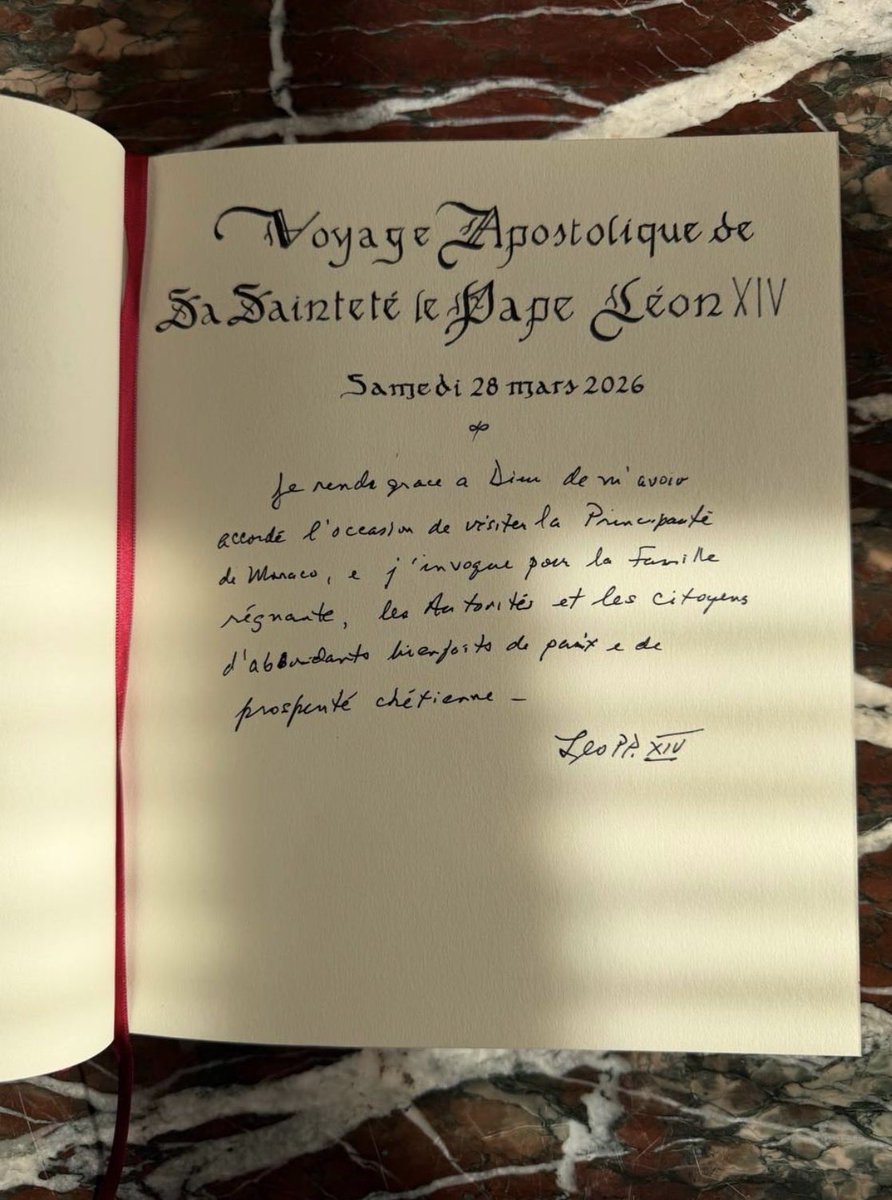 Voyage Apostolique de
Sa Sainteté le Pape Léon XIV
Samedi 28 mars 2026
Je rends grace a Dieu de m'avoir
accordé l'occasion de visiter la Principauté
de Monaco, e j'invoque pour la Famille
régnante, les Autorités et les citoyens
d'abondants bienfaits de paix e de
prosperité chétienne –
Leo PP. XIV